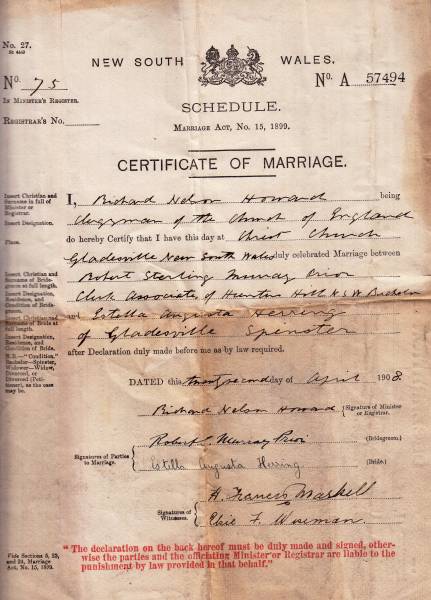 No. 27.
NEW SOUTH WALES.
No. 75
No. A 57494
IN MINISTER'S REGISTER.
SCHEDULE.
REGISTRAR'S No.
MARRIAGE ACT, No. 15, 1899.
CERTIFICATE OF MARRIAGE.
Insert Christian and Surname in full of Minister or Registrar.
I, Richard Nelson Howard being
Insert Designation.
Clergyman of the Church of England
Place.
do hereby Certify that I have this day at Christ Church
Gladesville New South Wales duly celebrated Marriage between
Insert Christian and Surname of Bridegroom at full length.
Robert Sterling Murray Prior
Insert Designation, Residence, and Condition of
Clerk Associate, of Hunters Hill N.S.W Bachelor
Insert Christian and Surname of Bride at full length.
and Estella Augusta Herring
Insert Designation, Residence, and Condition of Bride.
of Gladesville Spinster
after Declaration duly made before me as by law required.
N.B.—"Condition," Bachelor—Spinster, Widower—Widow, Divorced, or Divorced (Petitioner), as the case may be.
DATED this twenty second day of April 1908.
Richard Nelson Howard (Signature of Minister or Registrar.
Signatures of Parties to Marriage.
Robert S. Murray Prior (Bridegroom.)
Estella Augusta Herring (Bride.)
Signatures of Witnesses.
H. Francis Maskell
Elsie F.
Vide Sections 5, 23, and 29, Marriage Act, No. 15, 1899.
"The declaration on the back hereof must be duly made and signed, other-
wise the parties and the officiating Minister or Registrar are liable to the
punishment by law provided in that behalf."